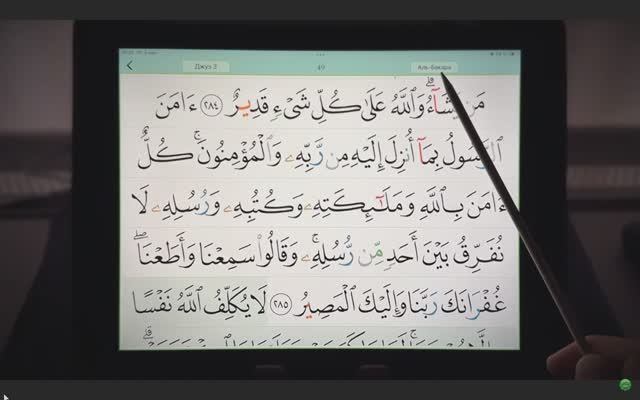 Джуз 3
49
Аль-бакара
مَن يَشَآءُ ۗ وَٱللَّهُ عَلَىٰ كُلِّ شَىْءٍ قَدِيرٌ ٢٨٤ ءَامَنَ
ٱلرَّسُولُ بِمَآ أُنزِلَ إِلَيْهِ مِن رَّبِّهِۦ وَٱلْمُؤْمِنُونَ ۚ كُلٌّ
ءَامَنَ بِٱللَّهِ وَمَلَـٰٓئِكَتِهِۦ وَكُتُبِهِۦ وَرُسُلِهِۦ لَا
نُفَرِّقُ بَيْنَ أَحَدٍ مِّن رُّسُلِهِۦ ۚ وَقَالُوا۟ سَمِعْنَا وَأَطَعْنَا ۖ
غُفْرَانَكَ رَبَّنَا وَإِلَيْكَ ٱلْمَصِيرُ ٢٨٥ لَا يُكَلِّفُ ٱللَّهُ نَفْسًا